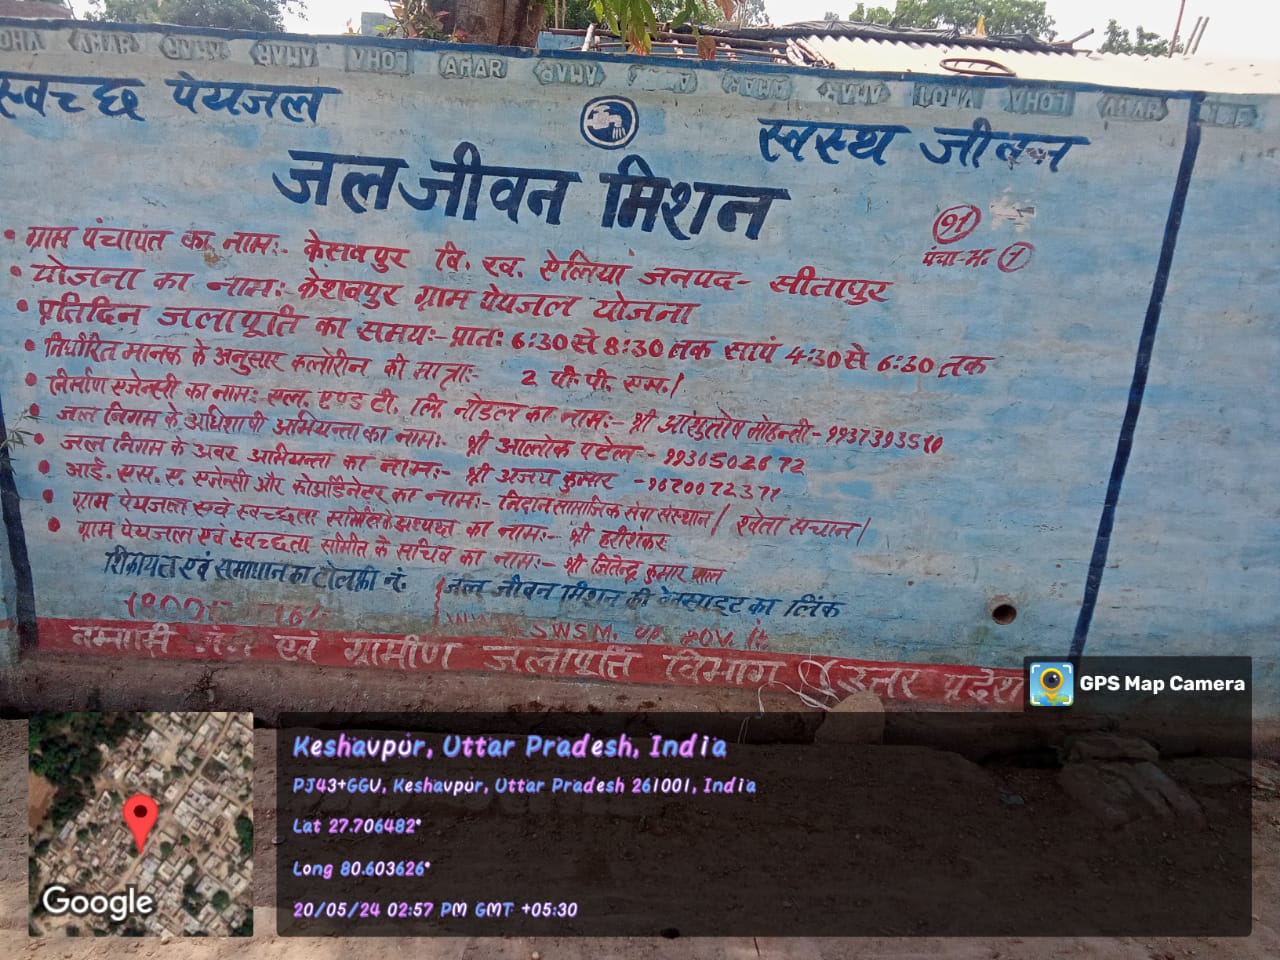 LOHA AMAR AMAR AMAR LOHA AMAR AMAR AMAR AMAR AMAR LOHA LOHA AMAR
स्वच्छ पेयजल
स्वस्थ जीवन
जल जीवन मिशन
पंचा-भ. 1
• ग्राम पंचायत का नाम:- केसवपुर वि. ख. ऐलिया जनपद- सीतापुर
• योजना का नाम: केशवपुर ग्राम पेयजल योजना
• प्रतिदिन जलापूर्ति का समय:- प्रात: 6:30 से 8:30 तक सायं 4:30 से 6:30 तक
• निर्धारित मानक के अनुसार क्लोरीन की मात्रा:- 2 पी. पी. एम./
• निर्माण एजेन्सी का नाम: एल. एण्ड टी. लि. नोडल का नाम:- श्री आसुतोष मोहन्ती -
• जल निगम के अधिशाषी अभियन्ता का नाम:- श्री आलोक पटेल -
• जल निगम के अवर अभियन्ता का नाम:- श्री अजय कुमार -
• आई. एस. ए. एजेन्सी और कोऑर्डिनेटर का नाम:- निदान सामाजिक सेवा संस्थान / श्वेता सचान /
• ग्राम पेयजल एवं स्वच्छता समिति के अध्यक्ष का नाम:- श्री हरीशंकर
• ग्राम पेयजल एवं स्वच्छता समिति के सचिव का नाम:- श्री जितेन्द्र कुमार पाल
शिकायत एवं समाधान का टोलफ्री नं. जल जीवन मिशन की वेबसाइट का लिंक
SWSM. UP.
नमामी गंगे एवं ग्रामीण जलापूर्ति विभाग उत्तर प्रदेश
GPS Map Camera
Keshavpur, Uttar Pradesh, India
PJ43+GGV, Keshavpur, Uttar Pradesh 261001, India
Lat 27.706482°
Long 80.603626°
20/05/24 02:57 PM GMT +05:30
Google